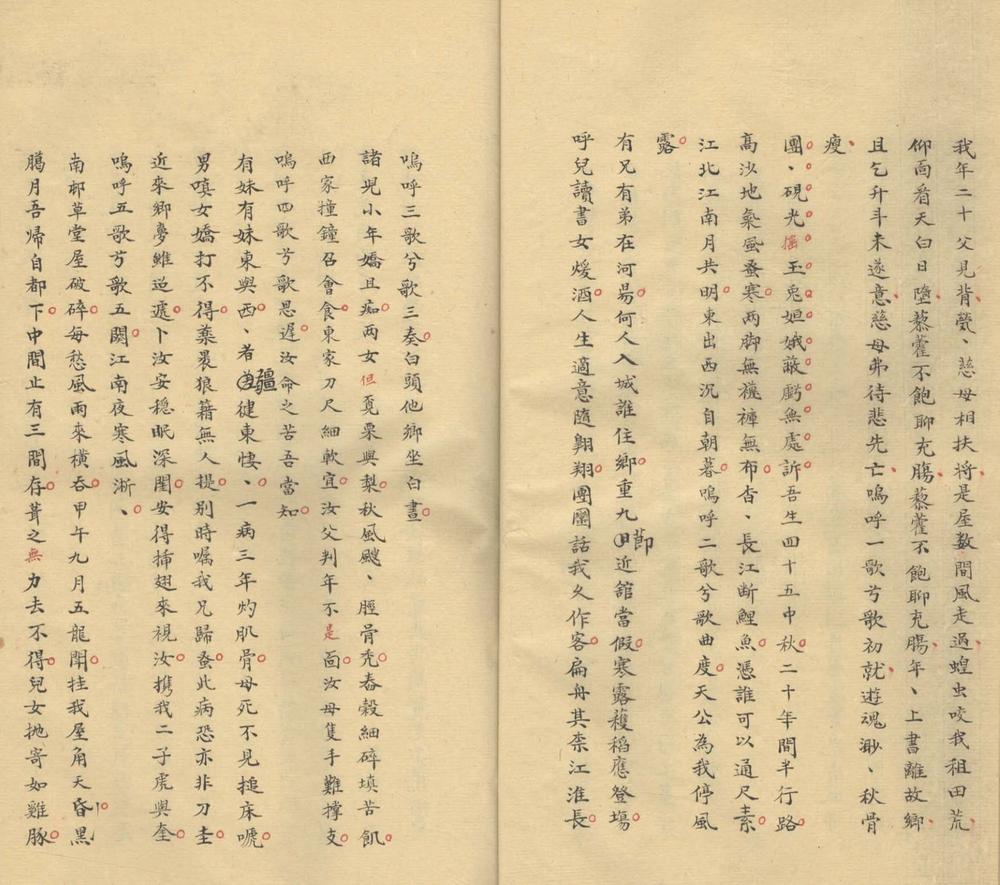 我年二十父見背煢、慈母相扶將是屋数間風走過蝗虫咬我祖田荒
仰面看天白日墮藜藿不飽聊充膓藜藿不飽聊充膓年、上書離故鄉
且乞升斗未遂意慈母弗待悲先亡嗚呼一歌兮歌初就遊魂渺、秋骨
瘦
團、硯光搖玉兎姮娥蔽虧無處訴吾生四十五中秋二十年間半行路
高沙地氣風蚤寒两脚無襪褲無布杳、長江断鯉魚憑誰可以通尺素
江北江南月共明東出西沉自朝暮嗚呼二歌兮歌曲度天公為我停風
露
有兄有弟在河昜何人入城誰住鄉重九日節近舘當假寒露穫稻應登塲
呼兒讀書女煖酒人生適意隨翺翔團圞話我久作客扁舟其柰江淮長
嗚呼三歌兮歌三奏白頭他鄉坐白晝
諸児小年嬌且痴两女但覓栗與梨秋風颼、脛骨秃舂榖細碎填苦飢
西家撞鐘召會食東家刀尺細軟宜汝父判年不是面汝母隻手難撑支
嗚呼四歌兮歌思遲汝命之苦吾當知
有妹有妹東與西、者疆健東悽、一病三年灼肌骨母死不見搥床嗁
男嗔女嬌打不得藥裹狼籍無人提别時囑我兄歸蚤此病恐亦非刀圭
近來鄉夢雖迢遞卜汝安穏眠深閨安得揷翅來視汝携我二子虎與奎
嗚呼五歌兮歌五闋江南夜寒風淅、
南邨草堂屋破碎每愁風雨來横吞甲午九月五龍鬬挂我屋角天昏黑
臈月吾帰自都下中間止有三間存葺之無力去不得兒女抛寄如雞豚